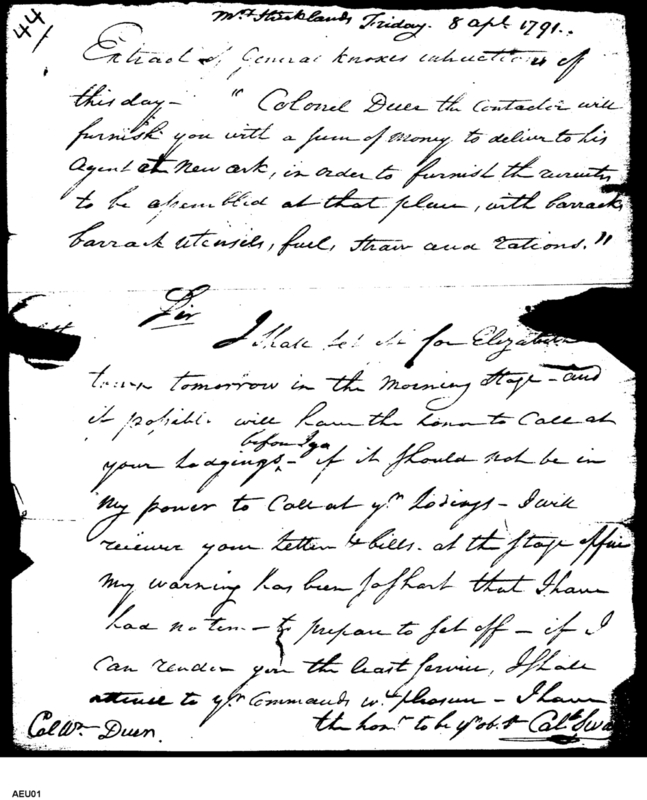 44
Mrs. Stricklands Friday. 8 apl. 1791..
Extract of General Knoxes instructions of
this day- "Colonel Duer the contractor will
furnish you with a sum of money to deliver to his
Agent at New ark, in order to furnish the recruits
to be assembled at that place, with barracks
barrack utensils, fuel, straw and rations."
Sir
I shall set out for Elizabeth
town tomorrow in the morning stage - and
if possible will have the honor to Call at
before I go
your Lodgings - if it should not be in
my power to Call at yr. Lodings - I will
receive your letters & bills. at the stage office
My warning has been so short that I have
had no time - to prepare to set off - if I
can render you the least service, I shall
to yr. Commands wt. pleasure - I have
the honr. to be yr. ob. St
Col Wm. Duer.
Cal. Swa
AEU01